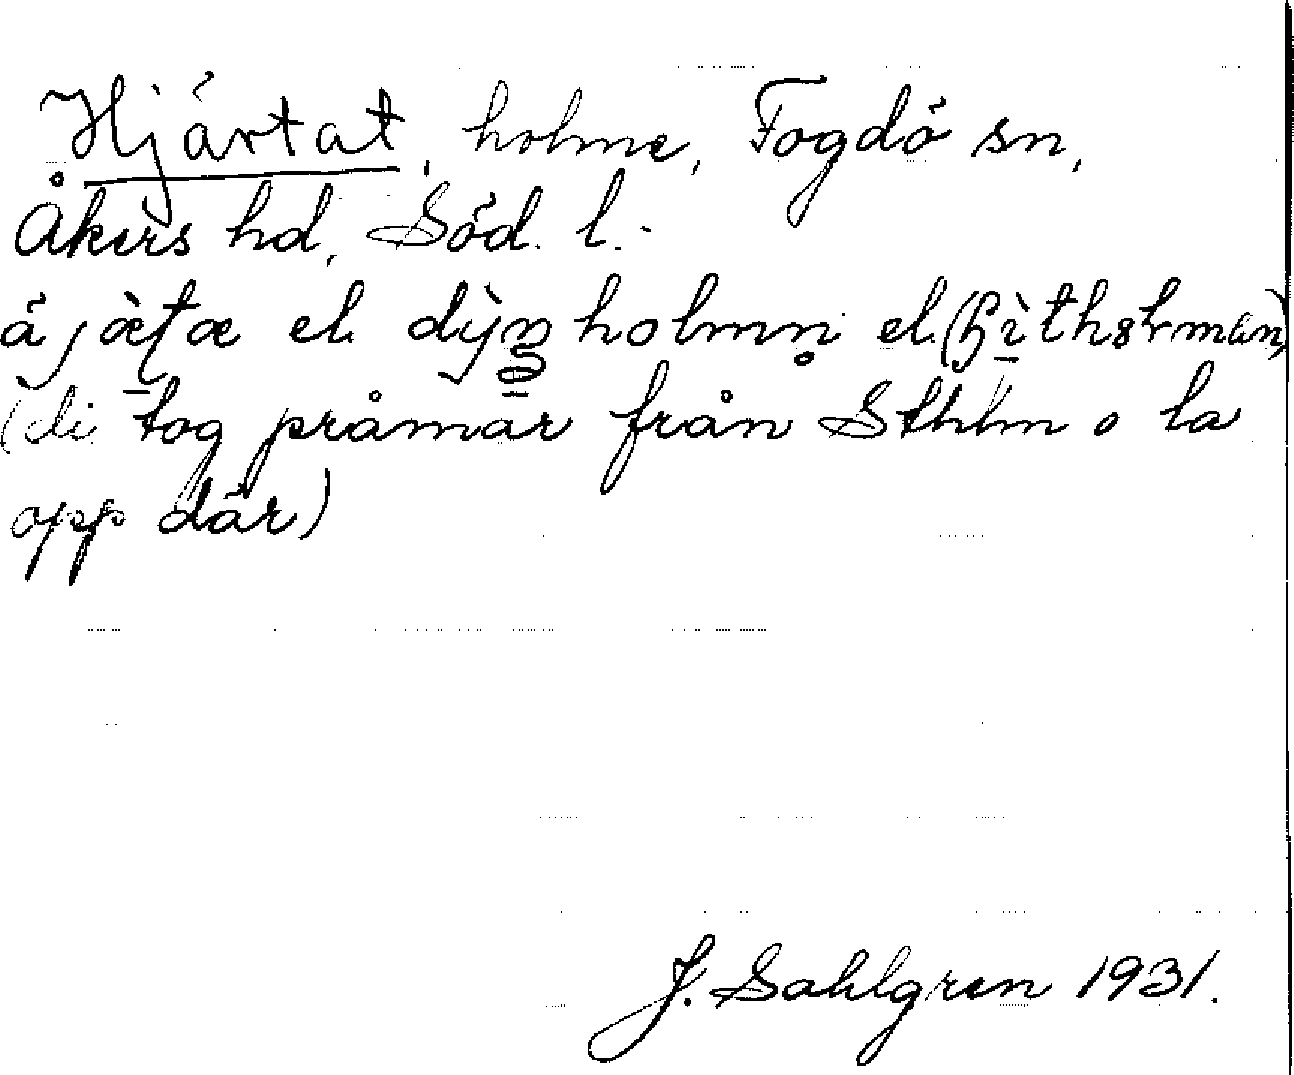 Hjärtat, holme, Fogdö sn,
Åkers hd, Söd. l.
ä jæʈæ el. dỳŋholmn̥ el.
(di tog pråmar från Sthlm o la
opp där)
J. Sahlgren 1931.